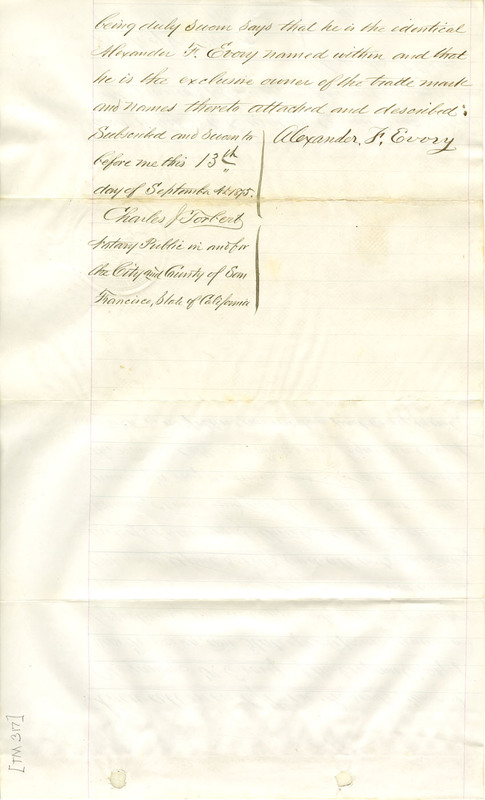 being duly sworn says that he is the identical
Alexander F. Evory named within and that
he is the exclusive owner of the trade mark
and names thereto attached and described.
Subscribed and Sworn to
before me this 13th
day of September A.D. 1875.
Alexander. F. Evory
Charles J Torbert
Notary Public in and for
the City and County of San
Francisco, State of California
[TM 317]